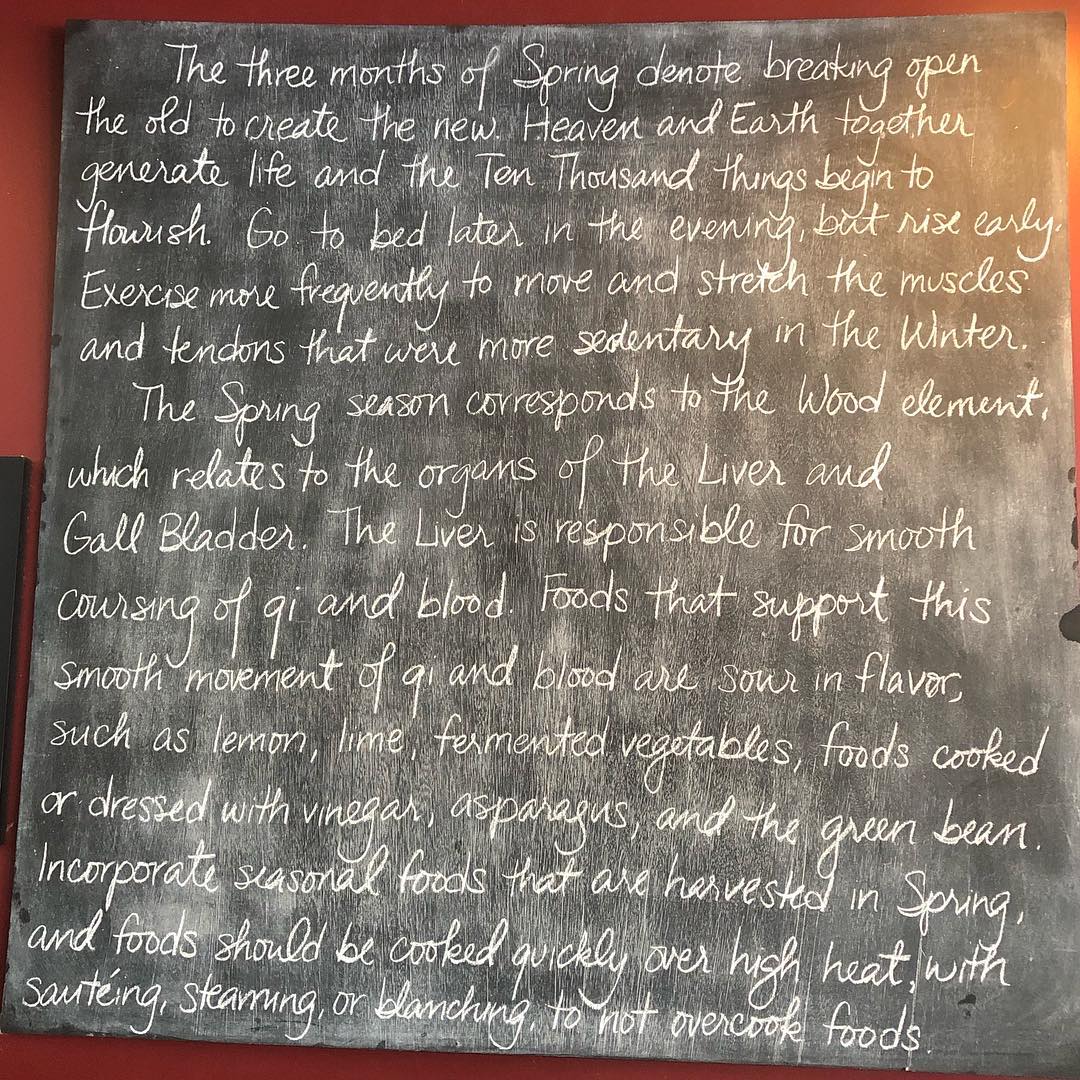 The three months of Spring denote breaking open
the old to create the new. Heaven and Earth together
generate life and the Ten Thousand things begin to
flourish. Go to bed later in the evening, but rise early.
Exercise more frequently to move and stretch the muscles
and tendons that were more sedentary in the Winter.
The Spring season corresponds to the Wood element,
which relates to the organs of the Liver and
Gall Bladder. The Liver is responsible for smooth
coursing of qi and blood. Foods that support this
smooth movement of qi and blood are sour in flavor,
such as lemon, lime, fermented vegetables, foods cooked
or dressed with vinegar, asparagus, and the green bean.
Incorporate seasonal foods that are harvested in Spring,
and foods should be cooked quickly over high heat, with
sautéing, steaming, or blanching, to not overcook foods.